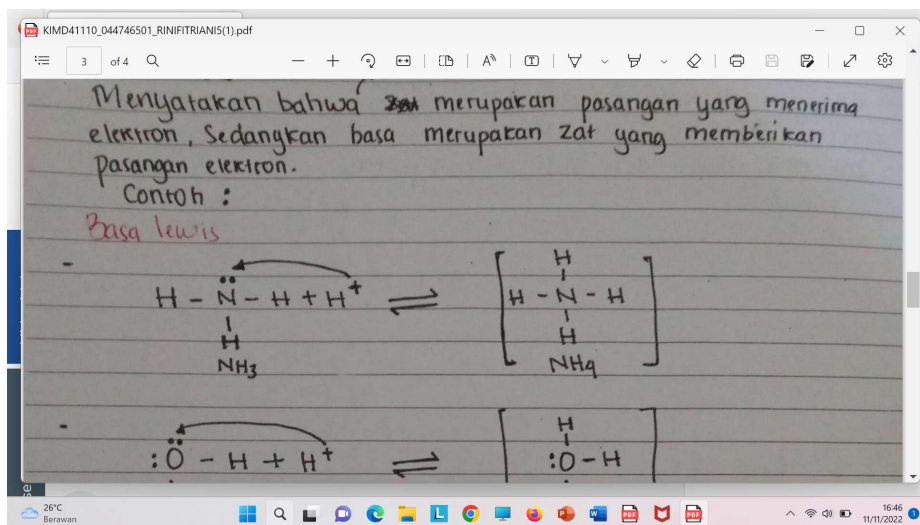 KIMD41110_044746501_RINIFITRIANI5(1).pdf
3 of 4
Menyatakan bahwa merupakan pasangan yang menerima
elektron, Sedangkan basa merupakan zat yang memberikan
Pasangan elektron.
Contoh :
Basa lewis
- H - N̈ - H + H⁺ ⇌ [ H - N - H ]
H
H
H
NH3
NH4
- :Ö - H + H⁺ ⇌ [ :O - H
H
26°C
Berawan
16:46
11/11/2022